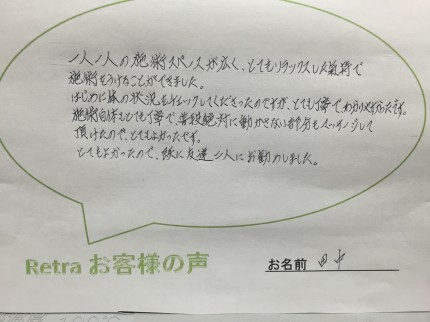 一人一人の施術スペースが広く、とてもリラックスした気持で
施術をうけることができました。
はじめに体の状況をチェックしてくださったのですが、とても丁寧でわかりやすかったです。
施術自体もとても丁寧で、普段絶対に動かさない部分もマッサージして
頂けたので、とてもよかったです。
とてもよかったので、既に友達二人にお勧めしました。
Retra お客様の声
お名前 田中